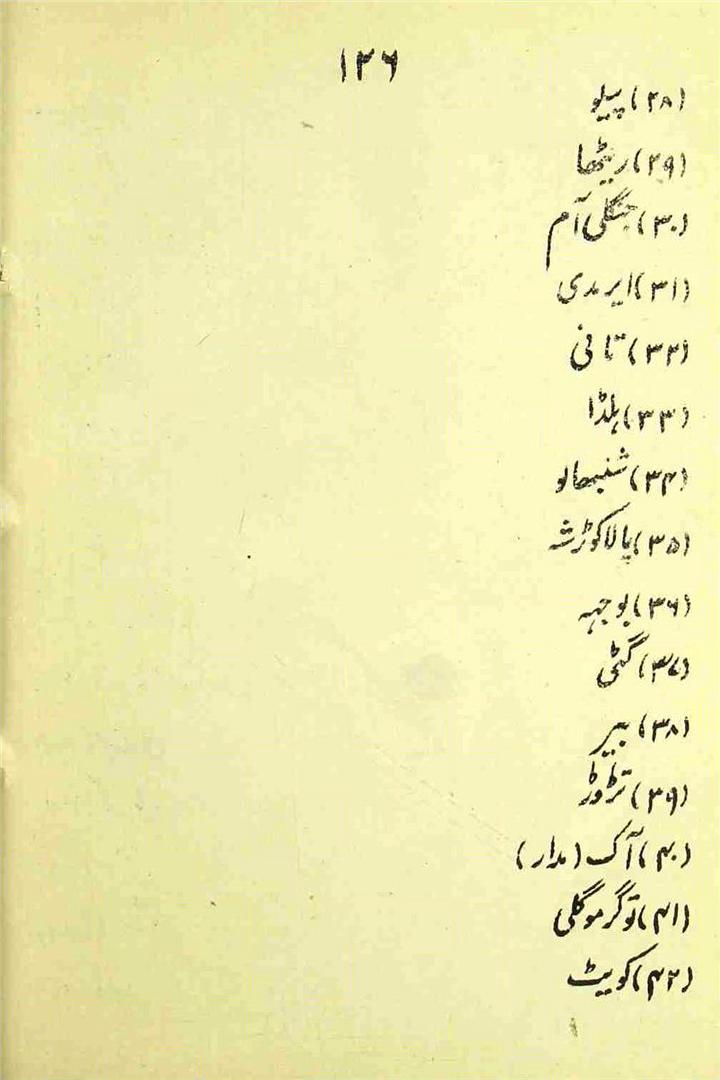 ۱۲۶
(۲۸) پیلو
(۲۹) ریٹھا
(۳۰) جنگلی آم
(۳۱) ایرمدی
(۳۲) تانی
(۳۳) ہلڈا
(۳۴) شنبھالو
(۳۵) پالاکوڑشہ
(۳۶) بوجہہ
(۳۷) گٹی
(۳۸) بیر
(۳۹) تڑوڑ
(۴۰) آک (مدار)
(۴۱) توگرموگلی
(۴۲) کویٹ